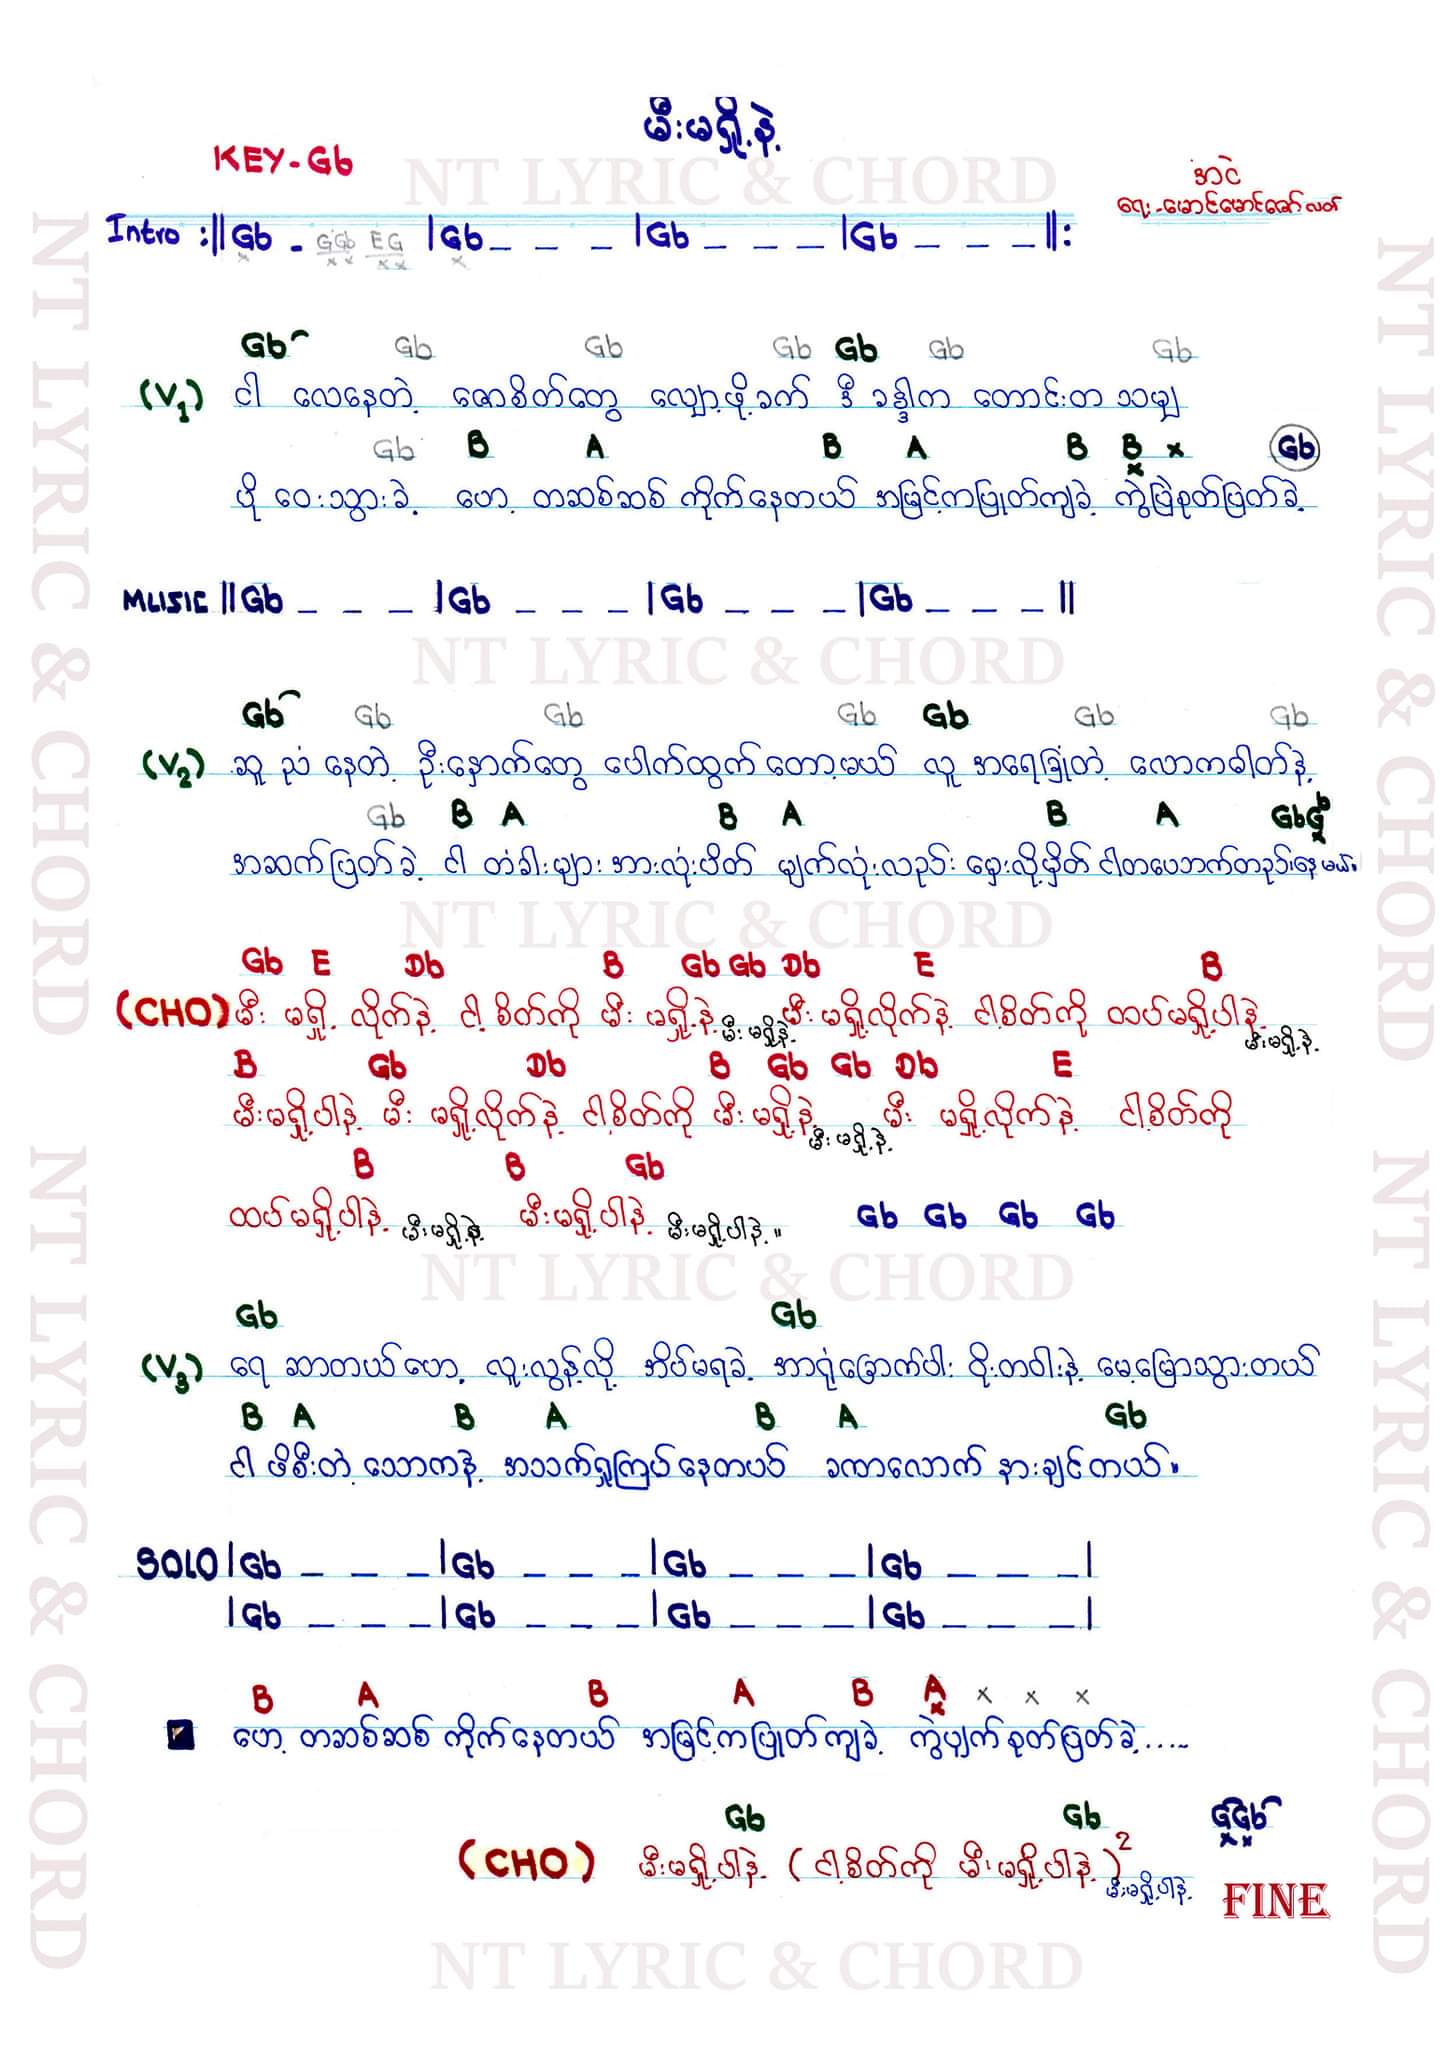 မီးမရှို့နဲ့
KEY-Gb
အငဲ
ရေး-မောင်မောင်ဇော်လတ်
NT LYRIC & CHORD
Intro :|| Gb - G Gb E G | Gb _ _ _ | Gb _ _ _ | Gb _ _ _ ||:
Gb Gb Gb Gb Gb Gb Gb
(V1) ငါ လေနေတဲ့ ဇောစိတ်တွေ လျှော့ဖို့ခက် ဒီ ခန္ဓါက တောင်းတ သမျှ
Gb B A B A B B x Gb
ပို ဝေးသွားခဲ့ ဟေ့ တဆစ်ဆစ် ကိုက်နေတယ် အမြင့်ကပြုတ်ကျခဲ့ ကွဲပြဲစုတ်ပြတ်ခဲ့
MUSIC || Gb _ _ _ | Gb _ _ _ | Gb _ _ _ | Gb _ _ _ ||
NT LYRIC & CHORD
Gb Gb Gb Gb Gb Gb Gb
(V2) ဆူ ညံ နေတဲ့ ဦးနှောက်တွေ ပေါက်ထွက် တော့မယ် လူ အရေခြုံတဲ့ လောကဓါတ်နဲ့
Gb B A B A B A Gb Gb
အဆက်ပြတ်ခဲ့ ငါ တံခါးများ အားလုံးပိတ် မျက်လုံးလည်း မှေးလို့မှိတ် ငါတပေဘက်တည်းနေမယ်။
NT LYRIC & CHORD
Gb E Db B Gb Gb Db E B
(CHO) မီး မရှို့ လိုက်နဲ့ ငါ့စိတ်ကို မီး မရှို့နဲ့ မီး မရှို့နဲ့ မီး မရှို့လိုက်နဲ့ ငါ့စိတ်ကို ထပ်မရှို့ပါနဲ့ မီးမရှို့နဲ့
B Gb Db B Gb Gb Db E
မီးမရှို့ပါနဲ့ မီး မရှို့လိုက်နဲ့ ငါ့စိတ်ကို မီး မရှို့နဲ့ မီး မရှို့နဲ့ မီး မရှို့လိုက်နဲ့ ငါ့စိတ်ကို
B B Gb
ထပ်မရှို့ပါနဲ့ မီးမရှို့နဲ့ မီးမရှို့ပါနဲ့ မီးမရှို့ပါနဲ့။ Gb Gb Gb Gb
NT LYRIC & CHORD
Gb Gb
(V3) ရေ ဆာတယ်ဟေ့ လူးလွန့်လို့ အိပ်မရခဲ့ အာရုံခြောက်ပါး ပိုးတဝါးနဲ့ မေ့မြောသွားတယ်
B A B A B A Gb
ငါ ဖိစီးတဲ့ သောကနဲ့ အသက်ရှုကြပ်နေတယ် ခဏလောက် နားချင်တယ်။
SOLO | Gb _ _ _ | Gb _ _ _ | Gb _ _ _ | Gb _ _ _ |
| Gb _ _ _ | Gb _ _ _ | Gb _ _ _ | Gb _ _ _ |
B A B A B A x x x
ဟေ့ တဆစ်ဆစ် ကိုက်နေတယ် အမြင့်ကပြုတ်ကျခဲ့ ကွဲပျက်စုတ်ပြတ်ခဲ့.....
Gb Gb G Gb
(CHO) မီးမရှို့ပါနဲ့ (ငါ့စိတ်ကို မီးမရှို့ပါနဲ့)2 မီးမရှို့ပါနဲ့
FINE
NT LYRIC & CHORD
NT LYRIC & CHORD
NT LYRIC & CHORD
NT LYRIC & CHORD
NT LYRIC & CHORD